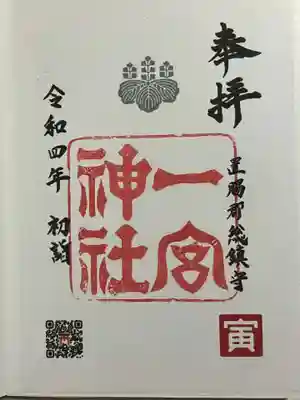 奉拝
足羽郡総鎮守
一宮
神社
令和四年 初詣
寅